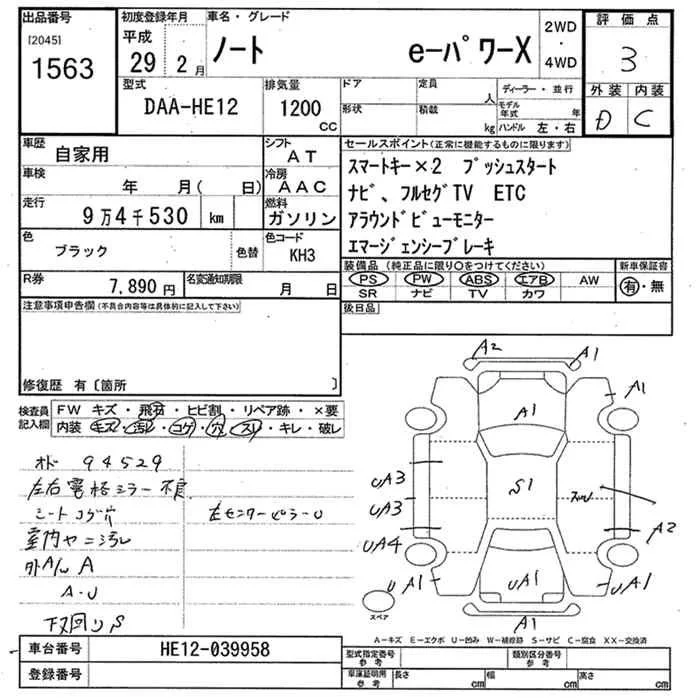 出品番号 初度登録年月 車名・グレード 2WD・4WD 評価点
[2045] 1563 平成29年2月 ノート e-パワーX 3
型式 排気量 ドア 定員 人 ディーラー・並行 外装 内装
DAA-HE12 1200cc 形状 積載 kg モデル年式 年 ハンドル 左・右 D C
車歴 自家用 シフト AT セールスポイント(正常に機能するものに限ります)
車検 年 月( 日) 冷房 AAC スマートキー×2 プッシュスタート
走行 9万4千530 km 燃料 ガソリン ナビ、フルセグTV ETC
アラウンドビューモニター
色 ブラック 色替 色コード KH3 エマージェンシーブレーキ
R券 7,890円 名変通知期限 月 日 装備品(純正品に限り○をつけてください) 新車保証書
PS PW ABS エアB AW 有・無
SR ナビ TV カワ
注意事項申告欄(不具合内容等は具体的に記入して下さい) 後日品
修復歴 有〔箇所 〕
検査員記入欄 FW キズ・飛石・ヒビ割・リペア跡・×要
内装 キズ・汚レ・コゲ・穴・スレ・キレ・破レ
オド 94529
左右電格ミラー不良
シートコゲ穴 左センターピラーU
室内ヤニ汚レ
外A/W A
A・U
下廻りS
A2 A1
A1 A1
UA3 S1
UA3 A2
UA4
U A1 UA1 UA1
スペア A1
A-キズ E-エクボ U-凹み W-補修跡 S-サビ C-腐食 XX-交換済
車台番号 HE12-039958 型式指定番号 参考 類別区分番号 参考
登録番号 車庫証明用 参考 長さ cm 幅 cm 高さ cm